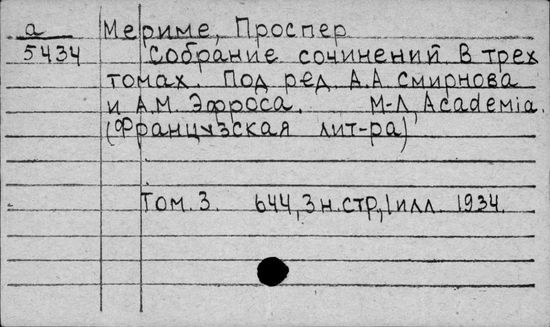 а
5434
Мериме, Проспер
Собрание сочинений в трех
томах. Под ред. А.А. Смирнова
и А.М. Эфроса. М-Л, Academia.
(Французская лит-ра)
Том. 3. 644, 3 н.стр, 1 илл. 1934.